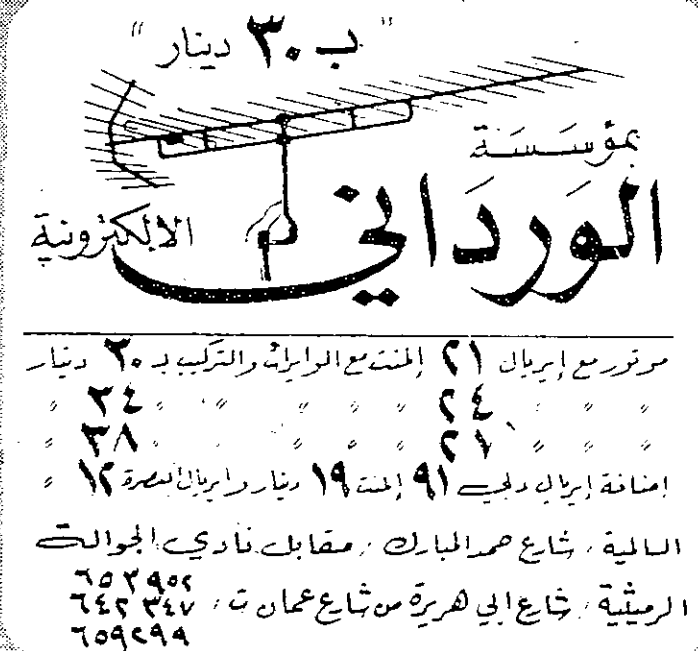 "ب ٣٠ دينار"
بمؤسسة
الورداني
الالكترونية
موتور مع إيريال ٢١ إلمنت مع الوايرات والتركيب بـ ٣٠ دينار
〃 〃 〃 ٢٤ 〃 〃 〃 〃 〃 ٣٤ 〃
〃 〃 〃 ٢٧ 〃 〃 〃 〃 〃 ٣٨ 〃
إضافة إيريال دبي ٩١ إلمنت ١٩ دينار وايريال البصرة ١٢ 〃
السالمية، شارع حمد المبارك، مقابل نادي الجوالة
٦٥٣٩٥٢
الرميثية، شارع ابي هريرة من شارع عمان ت، ٦٤٢٣٤٧
٦٥٩٢٩٩